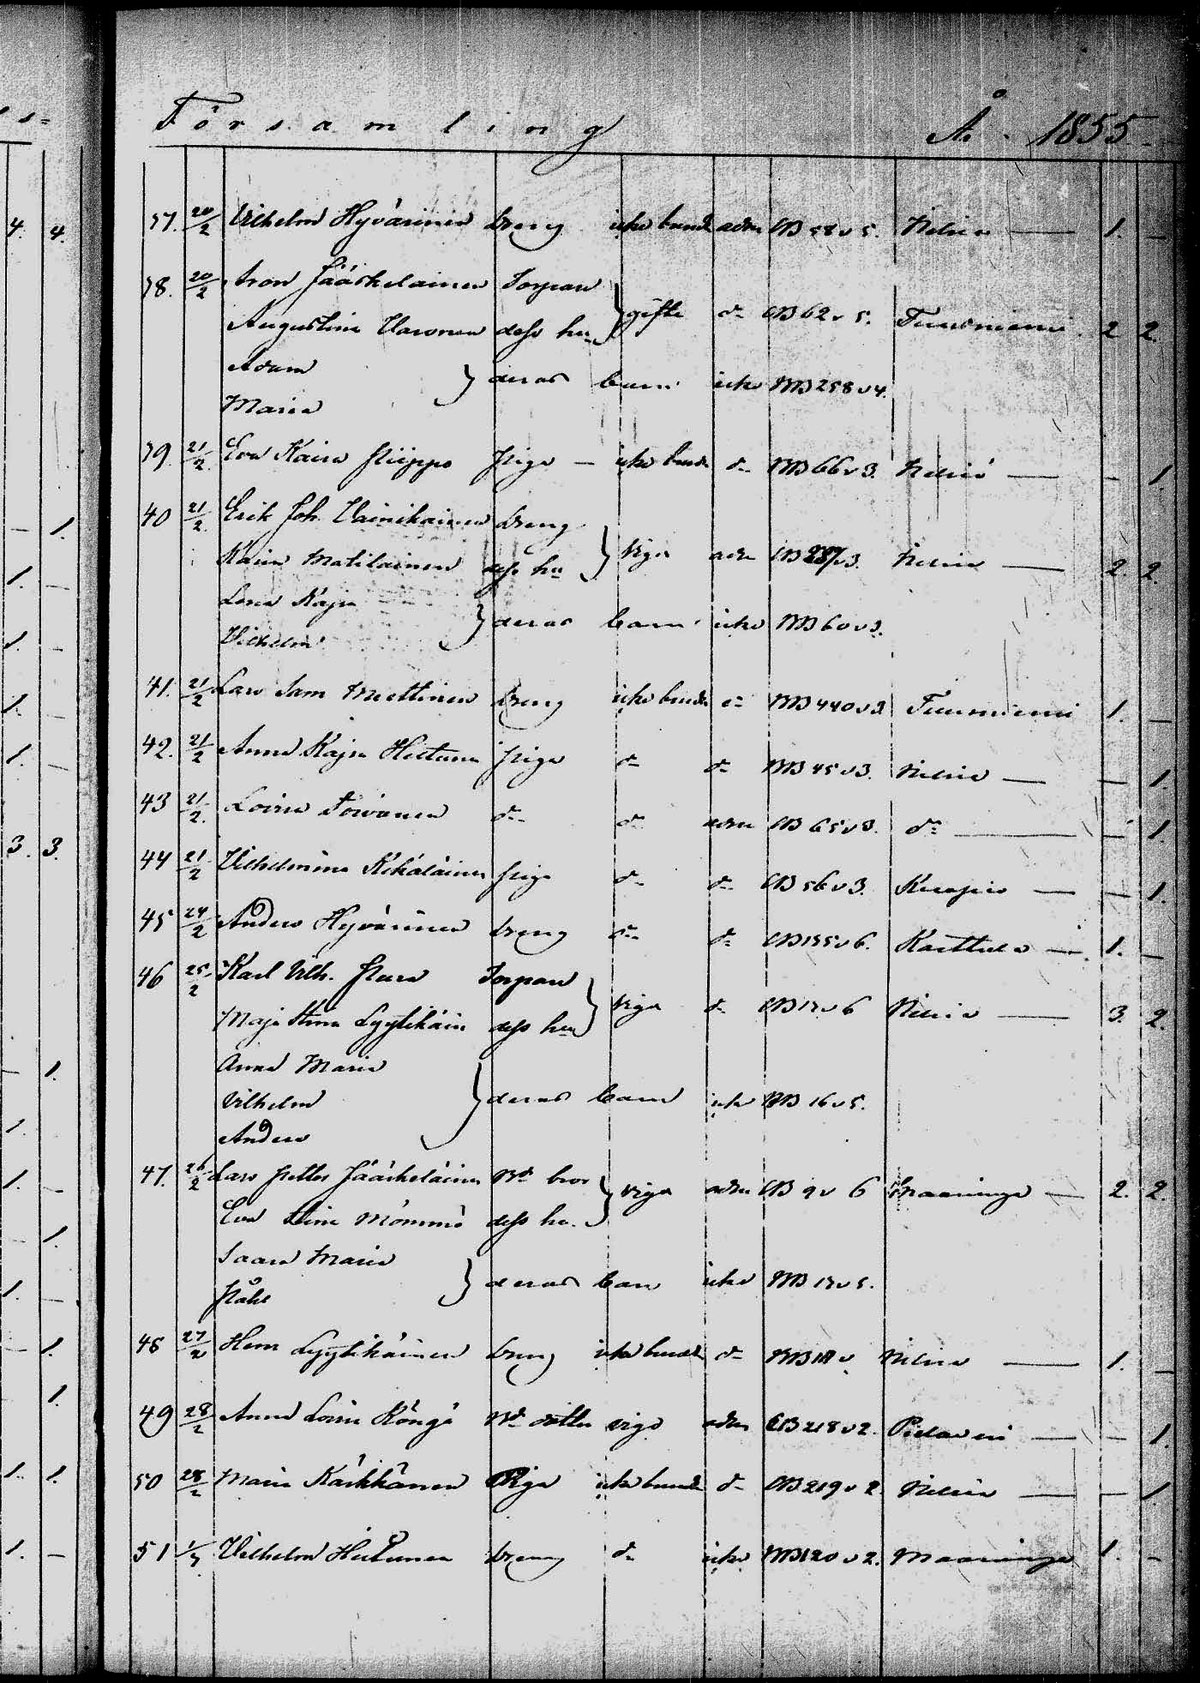 Församling År 1855.
37. 20/2 Vilhelm Hyvärinen dreng icke bunde adm CB 58 v 5. Nilsiä — 1. —
38. 20/2 Aron Jääskelainen Torpare
Augustina Varonen dess hu } gifte do CB 62 v 5. Tuusniemi 2 2.
Adam
Maria } deras barn icke MB 258 v 4.
39. 21/2 Eva Kaisa Piippo piga — icke bunde do MB 66 v 3. Nilsiä — — 1.
40 21/2. Erik Joh. Vainikainen dreng
Karin Matilainen dess hu } viga adm CB 287 v 3. Nilsiä — 2. 2.
Lena Kajsa
Vilhelm } deras barn icke MB 60 v 3.
41. 21/2 Lars Sam Miettinen dreng icke bunde do MB 440 v 3 Tuusniemi 1. —
42. 21/2 Anna Kajsa Hiltunen piga do do MB 45 v 3. Nilsiä — — 1.
43 21/2. Lovisa Toivanen do do adm CB 65 v 3. do — — 1.
44 21/2 Vilhelmina Kekäläinen piga do do CB 56 v 3. Kuopio — — 1.
45 24/2 Anders Hyvärinen dreng do do CB 155 v 6. Karttula — 1. —
46 25/2 Karl Vilh. Torpare
Maja Stina Lyytikäin dess hu } viga do CB 17 v 6 Nilsiä — 3. 2.
Anna Maria
Vilhelm
Anders } deras barn icke MB 16 v 5.
47. 26/2 Lars Petter Jääskeläinen bror
Eva Stina Mömmö dess hu. } viga adm CB 9 v 6 Maaninga — 2. 2.
Saara Maria
Påhl } deras barn icke MB 17 v 5.
48 27/2 Henr Lyytikäinen dreng icke bunde do Nilsiä — 1. —
49 28/2 Anna Lovisa Köngä dotter viga adm CB 218 v 2. Pielavesi — — 1.
50 28/2 Maria Kärkkänen Piga icke bunde do CB 219 v 2. Nilsiä — — 1.
51 1/3 Vilhelm Hiltunen dreng do icke MB 120 v 2. Maaninga 1. —
4. 4.
— 1.
1. —
1. —
1. —
1. —
3. 3.
— 1.
1. —
1. —
— 1.
1. —
— 1.
— 1.
1. 1.
1. —